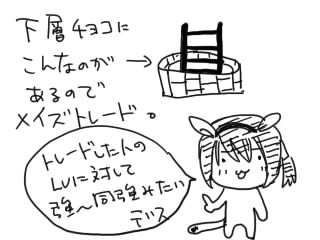 下層チョコに
こんなのが→
あるので
メイズトレード。
トレードした人の
LVに対して
強～同強みたい
デス